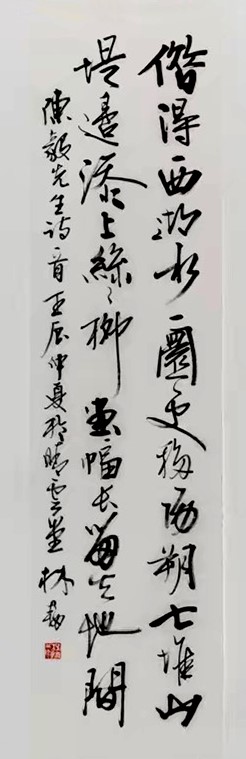 借得西湖水一圜更移陽朔七堆山
堤邊添上絲絲柳畫幅長留天地間
陳毅先生詩一首壬辰仲夏於晴雲堂林